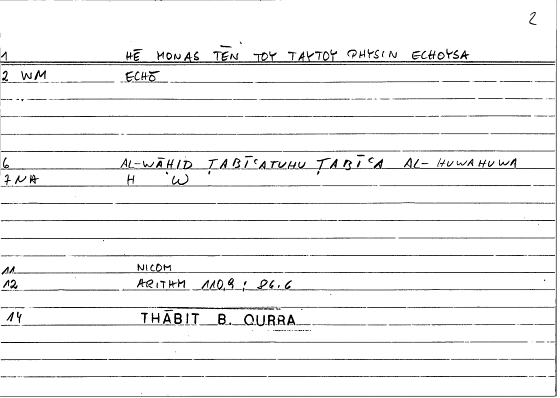 2
1 HĒ MONAS TĒN TOY TAYTOY PHYSIN ECHOYSA
2 WM ECHŌ
6 AL-WĀḤID ṬABĪꜤATUHU ṬABĪꜤA AL-HUWAHUWA
7 NA H W
11 NICOM
12 ARITHM 110,9 ; 86.6
14 THĀBIT B. QURRA